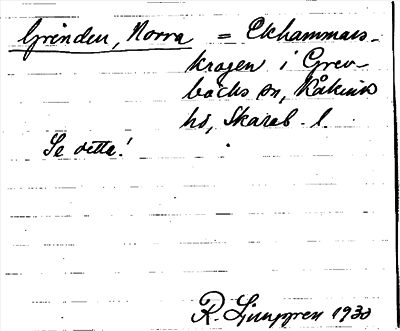 Grinden, Norra = Ekhammars-
krogen i Grev-
bäcks sn, Kåkinds
hd, Skarab. l.
Se detta!
R. Ljunggren 1930